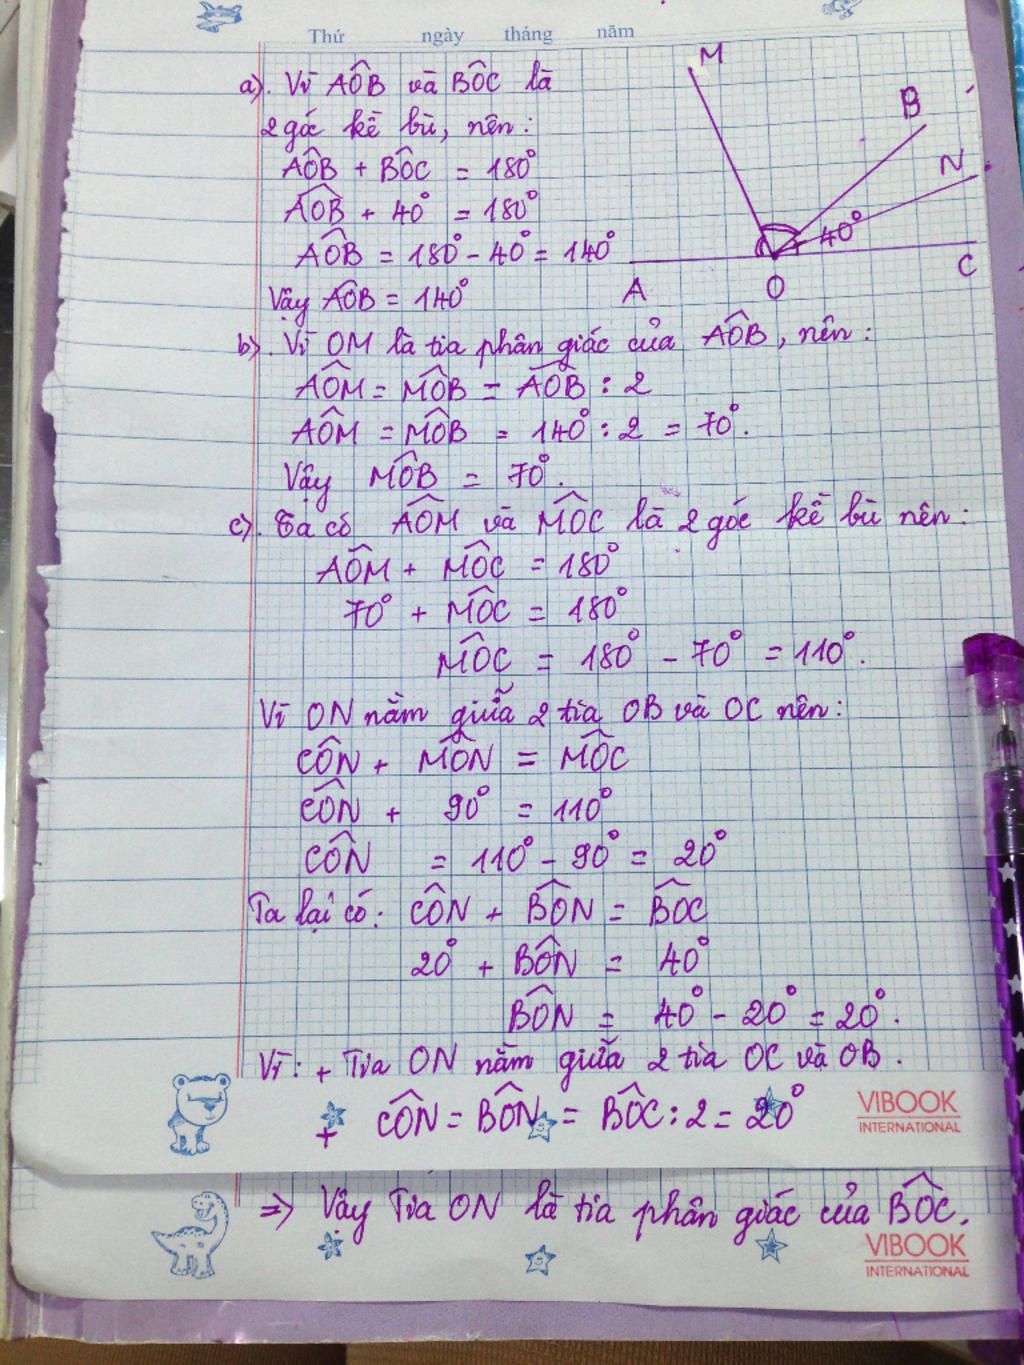 Thứ ngày tháng năm
a). Vì AÔB và BÔC là
2 góc kề bù, nên:
AÔB + BÔC = 180°
AÔB + 40° = 180°
AÔB = 180° - 40° = 140°
Vậy AÔB = 140°
M
B
N
40°
A
O
C
b). Vì OM là tia phân giác của AÔB, nên:
AÔM = MÔB = AÔB : 2
AÔM = MÔB = 140° : 2 = 70°.
Vậy MÔB = 70°.
c). Ta có AÔM và MÔC là 2 góc kề bù nên:
AÔM + MÔC = 180°
70° + MÔC = 180°
MÔC = 180° - 70° = 110°.
Vì ON nằm giữa 2 tia OB và OC nên:
CÔN + MÔN = MÔC
CÔN + 90° = 110°
CÔN = 110° - 90° = 20°
Ta lại có: CÔN + BÔN = BÔC
20° + BÔN = 40°
BÔN = 40° - 20° = 20°.
Vì: + Tia ON nằm giữa 2 tia OC và OB.
+ CÔN = BÔN = BÔC : 2 = 20°
VIBOOK
INTERNATIONAL
=> Vậy Tia ON là tia phân giác của BÔC.
VIBOOK
INTERNATIONAL